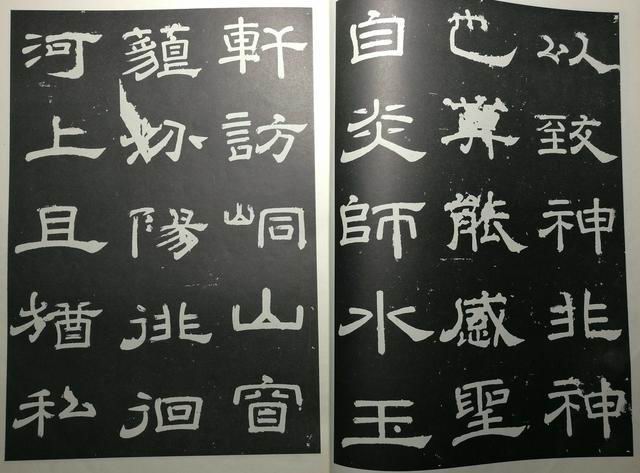 以致神非神
也莫能感聖
自炎師水玉
軒訪峒山窅
汾陽徘徊
河上且猶私